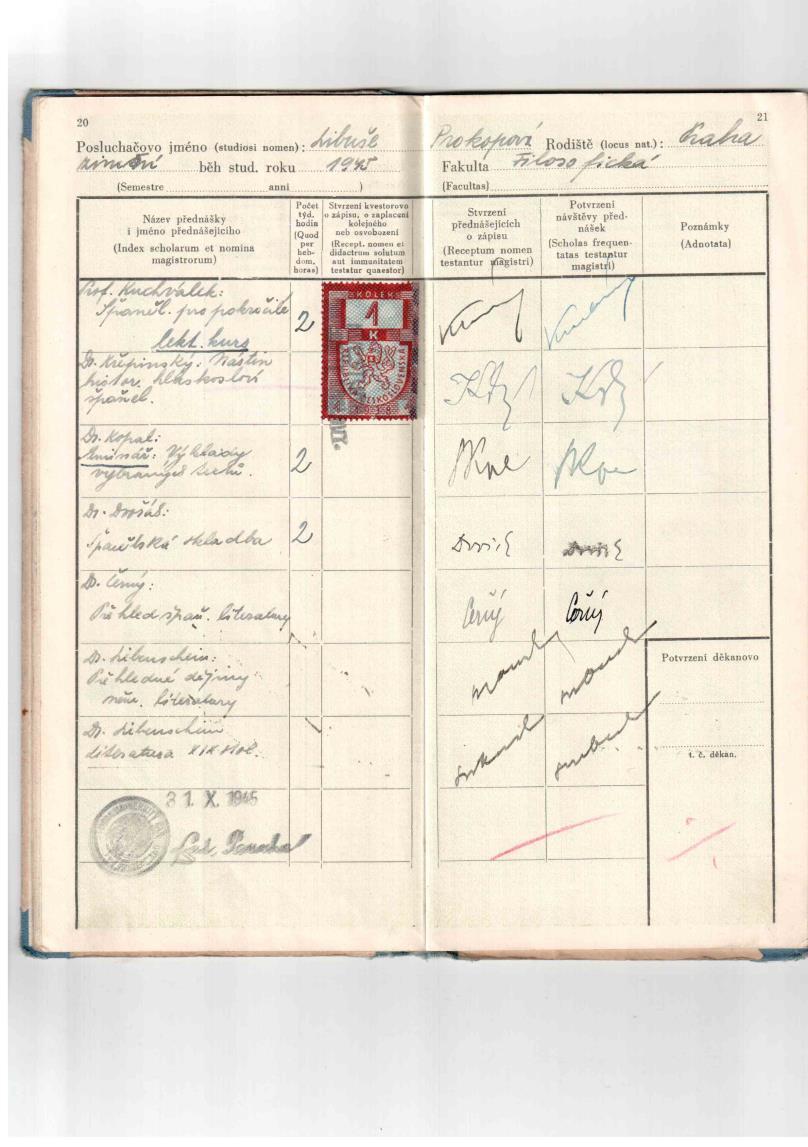 20
21
Posluchačovo jméno (studiosi nomen): Libuše Prokopová Rodiště (locus nat.): Praha
zimní běh stud. roku 1945 Fakulta Filosofická
(Semestre anni ) (Facultas)
Název přednášky
i jméno přednášejícího
(Index scholarum et nomina
magistrorum)
Počet
týd.
hodin
(Quod
per
heb-
dom.
horas)
Stvrzení kvestorovo
o zápisu, o zaplacení
kolejného
neb osvobození
(Recept. nomen et
didactrum solutum
aut immunitatem
testatur quaestor)
Stvrzení
přednášejících
o zápisu
(Receptum nomen
testantur magistri)
Potvrzení
návštěvy před-
nášek
(Scholas frequen-
tatas testantur
magistri)
Poznámky
(Adnotata)
Prof. Kuchválek:
Španěl. pro pokročilé 2
lekt. kurs
KOLEK
1
K
REPUBLIKA ČESKOSLOVENSKÁ
Dr. Křepinský: Nástin
histor. hláskosloví
španěl.
Dr. Kopal:
Seminář: Výklady 2
vybraných textů.
Dr. Drošás:
Španělská skladba 2
Dr. Černý:
Přehled špaň. literatury Černý Černý
Dr. Libenschein:
Přehledné dějiny
něm. literatury
Potvrzení děkanovo
t. č. děkan.
Dr. Libenschein
literatura XIX stol.
31. X. 1945